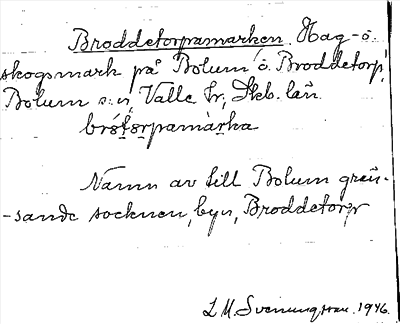 Broddetorpamarken. Hag- o.
skogsmark på Bolum o. Broddetorp,
Bolum s:n, Valle hr, Skb. län.
Namn av till Bolum grän-
-sande socknen, byn, Broddetorp
L M. Svenungsson. 1946.